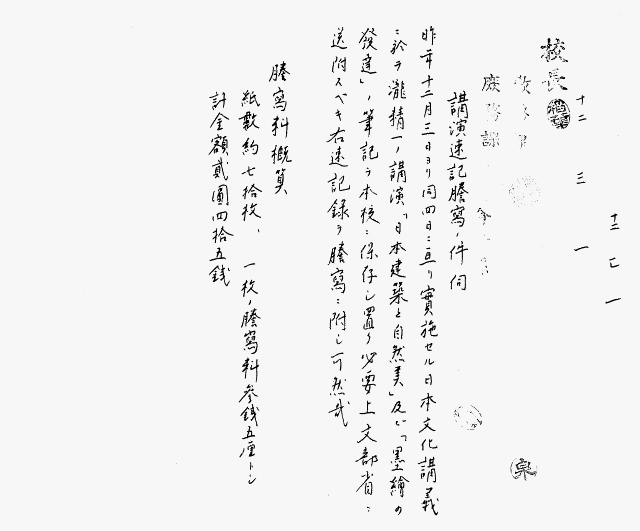 十二 二 一
十二 三 一
校長
庶務課
講演速記謄寫ノ件伺
昨年十二月三日ヨリ同四日ニ亘リ實施セル日本文化講義
ニ於テ瀧精一ノ講演「日本建築と自然美」及ビ「墨繪の
發達」ノ筆記ヲ本校ニ保存シ置ク必要上文部省ニ
送附スベキ右速記録ヲ謄寫ニ附シ可然哉
謄寫料概算
紙數約七拾枚、一枚ノ謄寫料參錢五厘トシ
計金額貳圓四拾五錢